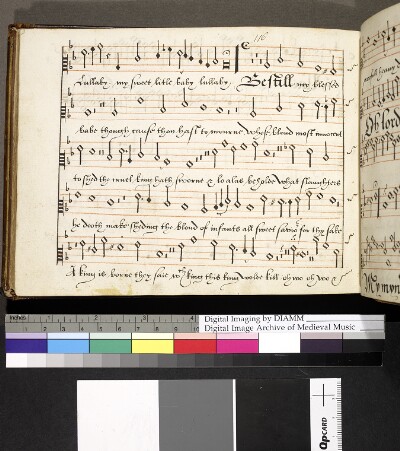 116
Lullaby my sweet litle baby lullaby. Be still my blessed
babe though cause thou hast to mourne whose bloud most innocent
to shed the cruell king hath sworne & lo alas behold what slaughters
he doeth make sheding the bloud of infants all sweet for thy sake
A king is borne they saie wch king this king wolde kill oh woe oh woe &
Oh lord
My
inches 1 2 3 4
Digital Imaging by DIAMM
Digital Image Archive of Medieval Music
QPCARD